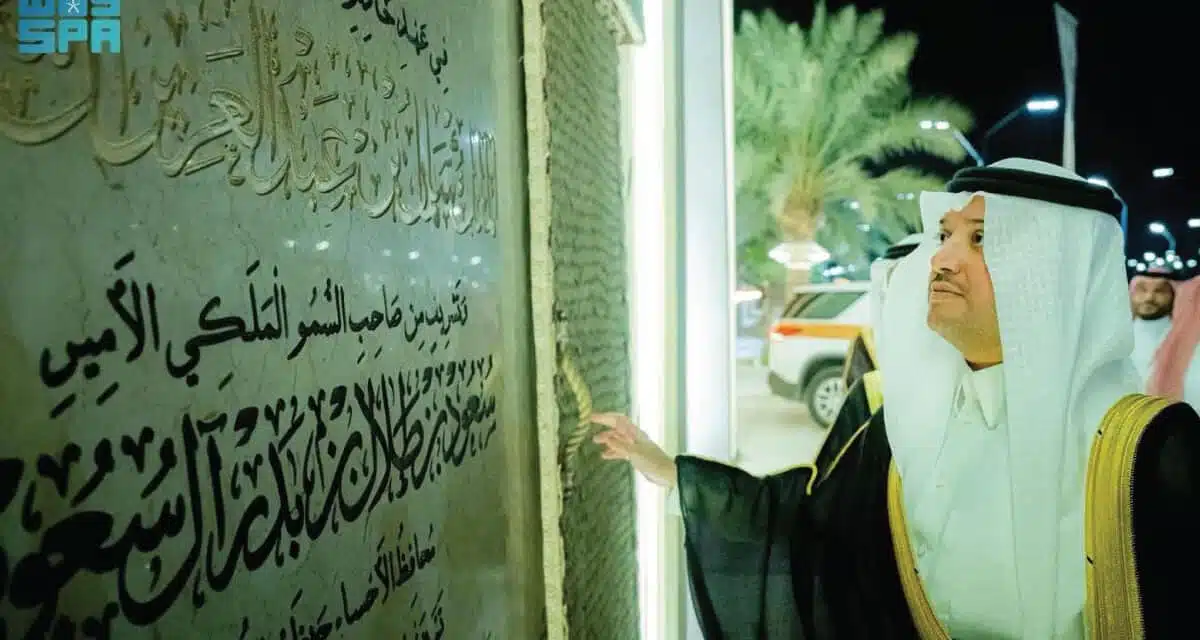 واس
SPA
في عهد خادم
الملك سلمان بن عبدالعزيز آل
تَشَرِيفٍ مِن صَاحِبِ السُّمُو المَلَكِي الأَمِيرِ
سعود بن طلال بن بدر آل سعود
محافظ الأحساء